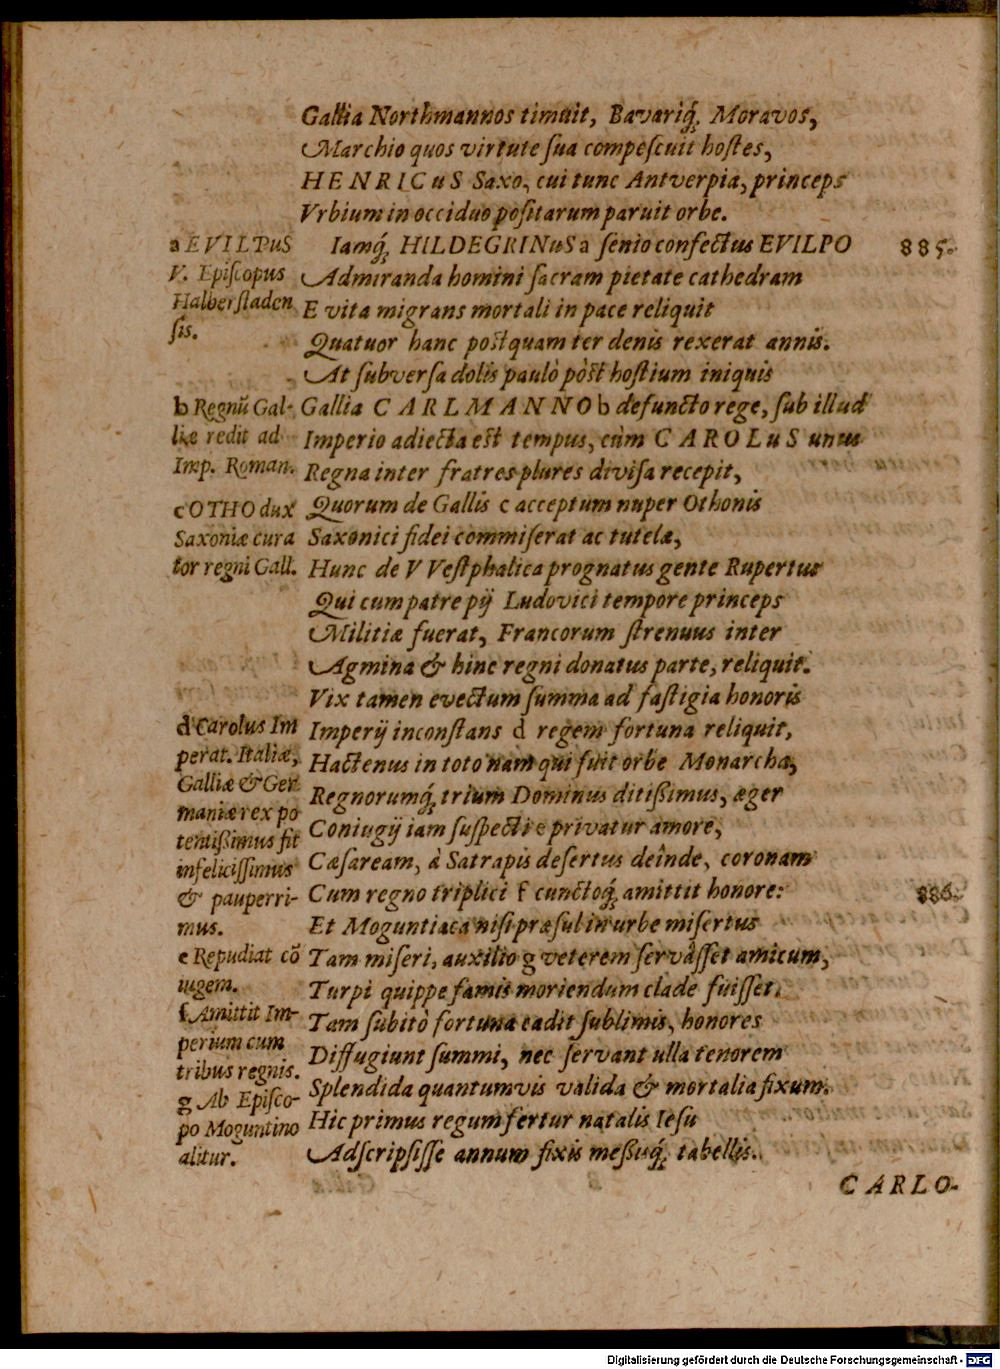 Gallia Northmannos timuit, Bavariq́; Moravos,
Marchio quos virtute ſua compeſcuit hoſtes,
HENRICuS Saxo, cui tunc Antverpia, princeps
Vrbium in occiduo poſitarum paruit orbe.
Iamq́; HILDEGRINuS a ſenio confectus EVILPO 885.
Admiranda homini ſacram pietate cathedram
E vita migrans mortali in pace reliquit
Quatuor hanc poſtquam ter denis rexerat annis.
At ſubverſa dolis paulò pòſt hoſtium iniquis
Gallia CARLMANNO b defuncto rege, ſub illud
Imperio adiecta eſt tempus, cùm CAROLuS unus
Regna inter fratres plures diviſa recepit,
Quorum de Gallis c acceptum nuper Othonis
Saxonici fidei commiſerat ac tutelæ,
Hunc de VVeſtphalica prognatus gente Rupertus
Qui cum patre pij Ludovici tempore princeps
Militiæ fuerat, Francorum ſtrenuus inter
Agmina & hinc regni donatus parte, reliquit.
Vix tamen evectum ſumma ad faſtigia honoris
Imperij inconſtans d regem fortuna reliquit,
Hactenus in toto nam qui fuit orbe Monarcha,
Regnorumq́; trium Dominus ditißimus, æger
Coniugij iam ſuſpecti e privatur amore,
Cæſaream, à Satrapis deſertus deînde, coronam
Cum regno triplici f cunctoq́; amittit honore: 886.
Et Moguntiaca niſi præſul in urbe miſertus
Tam miſeri, auxilio g veterem ſervâſſet amicum,
Turpi quippe famis moriendum clade fuiſſet.
Tam ſubitò fortuna cadit ſublimis, honores
Diffugiunt ſummi, nec ſervant ulla tenorem
Splendida quantumvis valida & mortalia fixum.
Hic primus regum fertur natalis Ieſu
Adſcripſiſſe annum fixis meßuq́; tabellis.
CARLO-
a EVILPuS
V. Epiſcopus
Halberſtaden
ſis.
b Regnū Gal-
liæ redit ad
Imp. Roman.
c OTHO dux
Saxoniæ cura
tor regni Gall.
d Carolus Im
perat. Italiæ,
Galliæ & Ger
maniæ rex po
tentißimus fit
infeliciſſimus
& pauperri-
mus.
e Repudiat cō
iugem.
f Amittit Im-
perium cum
tribus regnis.
g Ab Epiſco-
po Moguntino
alitur.
Digitalisierung gefördert durch die Deutsche Forschungsgemeinschaft - DFG